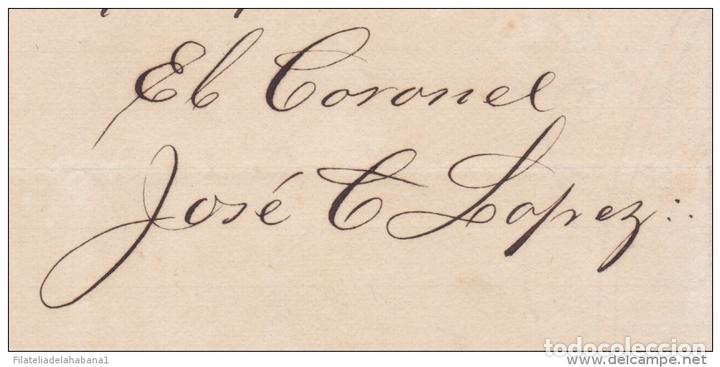 El Coronel
José C Lopez
todocoleccion
Filateliadelahabana1
www.delcampe.net